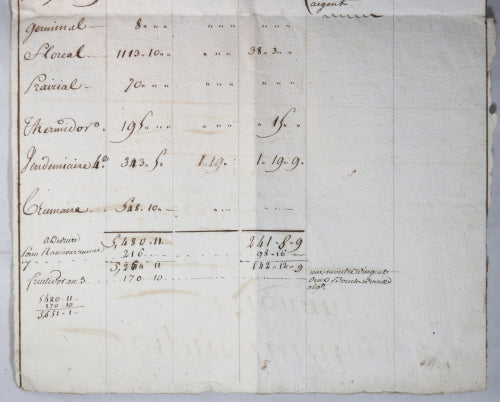 argent
Germinal 8 " " " " " " " "
Floreal 1113 .. 10 .. " " " 38 .. 3 .. "
Prairial 70 .. " " " " " " " "
Thermidor 195 .. " " " " " " 15 .. "
Vendemiaire 4e 343 .. 5 .. 1 .. 19 .. 1 .. 19 .. 9
Brumaire 548 .. 10 ..
5,480 .. 11 241 .. 8 .. 9
216 98 .. 16
5,264 11 142 .. 12 .. 9
fructidor an 3. 170 .. 10
une montre d'argent
5480 .. 11
170 .. 10
5,651 .. 1